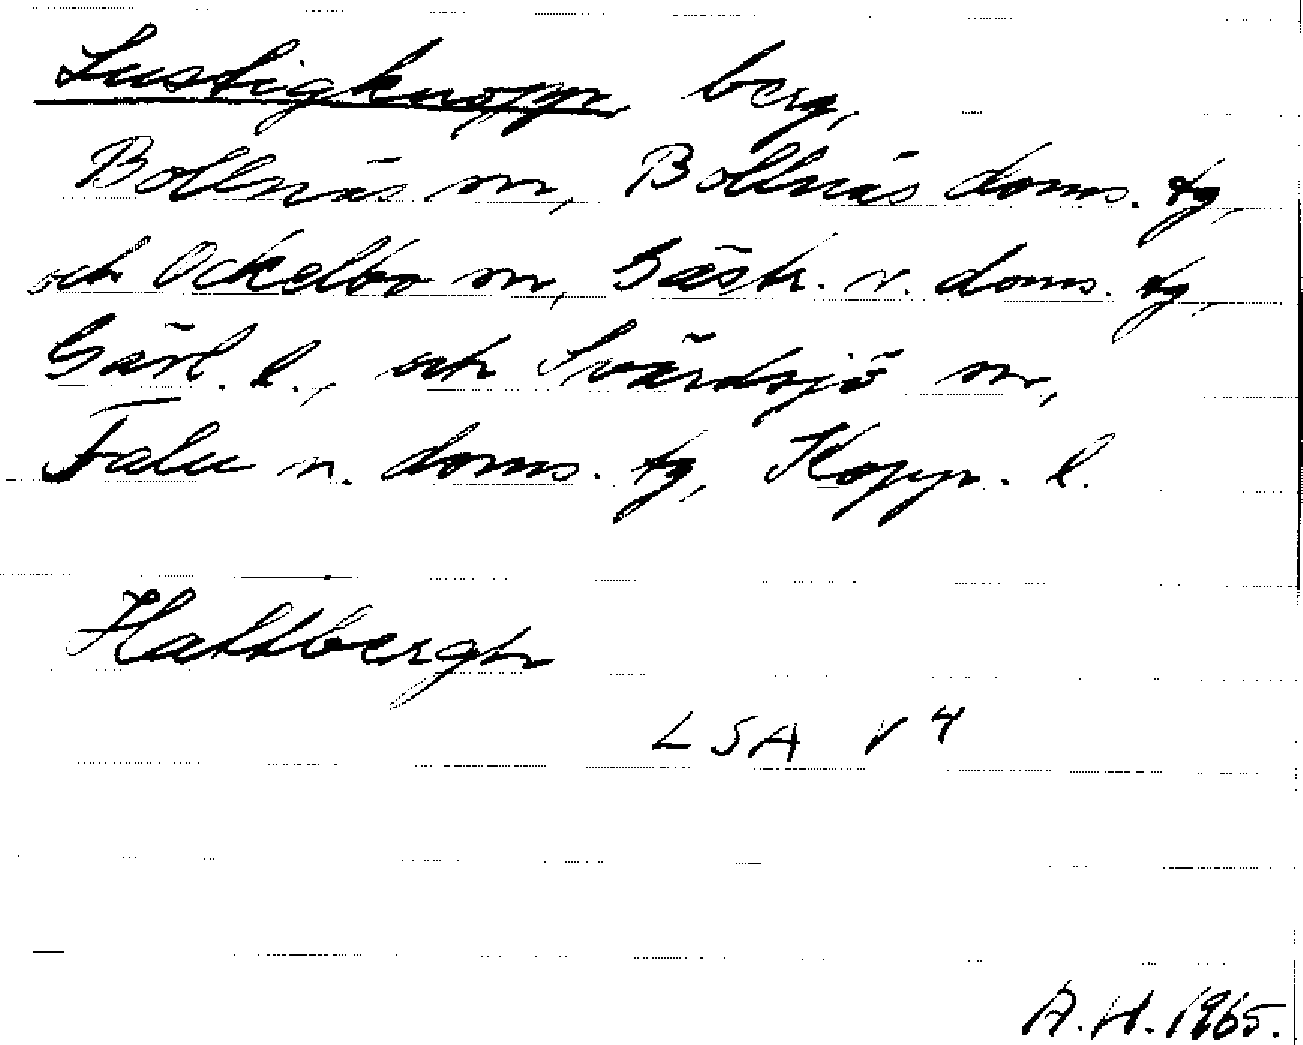 Lustigknopp, berg,
Bollnäs sn, Bollnäs doms. tg,
och Ockelbo sn, Gästr. v. doms. tg,
Gävl. l., och Svärdsjö sn,
Falu n. doms. tg, Kopp. l.
Hattbergtr
LSA V 4
A.H. 1965.